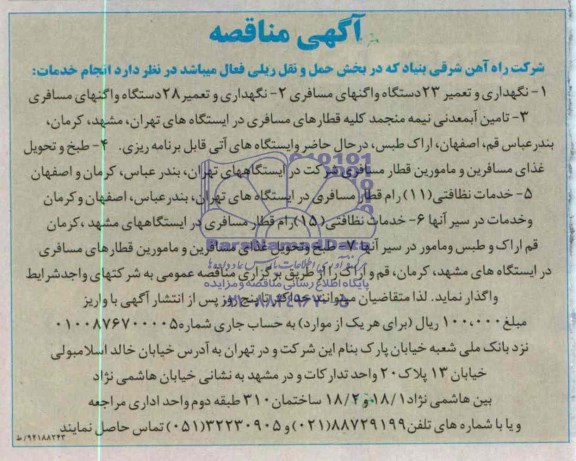 آگهی مناقصه
شرکت راه آهن شرقی بنیاد که در بخش حمل و نقل ریلی فعال میباشد در نظر دارد انجام خدمات:
۱- نگهداری و تعمیر ۲۳ دستگاه واگنهای مسافری ۲- نگهداری و تعمیر ۲۸ دستگاه واگنهای مسافری
۳- تامین آبمعدنی نیمه منجمد کلیه قطارهای مسافری در ایستگاه های تهران، مشهد، کرمان،
بندرعباس قم، اصفهان، اراک طبس، درحال حاضر وایستگاه های آتی قابل برنامه ریزی. ۴- طبخ و تحویل
غذای مسافرین و مامورین قطار مسافری شرکت در ایستگاههای تهران، بندر عباس، کرمان و اصفهان
۵- خدمات نظافتی (۱۱) رام قطار مسافری در ایستگاه های تهران، بندرعباس، اصفهان و کرمان
وخدمات در سیر آنها ۶- خدمات نظافتی (۱۵) رام قطار مسافری در ایستگاههای مشهد، کرمان
قم اراک و طبس ومامور در سیر آنها ۷- طبخ وتحویل غذای مسافرین و مامورین قطارهای مسافری
در ایستگاه های مشهد، کرمان، قم و اراک را از طریق برگزاری مناقصه عمومی به شرکتهای واجدشرایط
واگذار نماید. لذا متقاضیان میتوانند حداکثر تا پنج روز پس از انتشار آگهی با واریز
مبلغ ۱۰۰,۰۰۰ ریال (برای هر یک از موارد) به حساب جاری شماره ۰۱۰۰۸۷۶۷۰۰۰۰۵
نزد بانک ملی شعبه خیابان پارک بنام این شرکت و در تهران به آدرس خیابان خالد اسلامبولی
خیابان ۱۳ پلاک ۲۰ واحد تدارکات و در مشهد به نشانی خیابان هاشمی نژاد
بین هاشمی نژاد ۱۸/۱ و ۱۸/۲ ساختمان ۳۱۰ طبقه دوم واحد اداری مراجعه
و یا با شماره های تلفن ۸۸۷۲۹۱۹۹ (۰۲۱) و ۳۲۲۳۰۹۰۵ (۰۵۱) تماس حاصل نمایند
۹۴۱۸۸۲۴۳/ط
پایگاه اطلاع رسانی مناقصه و مزایده